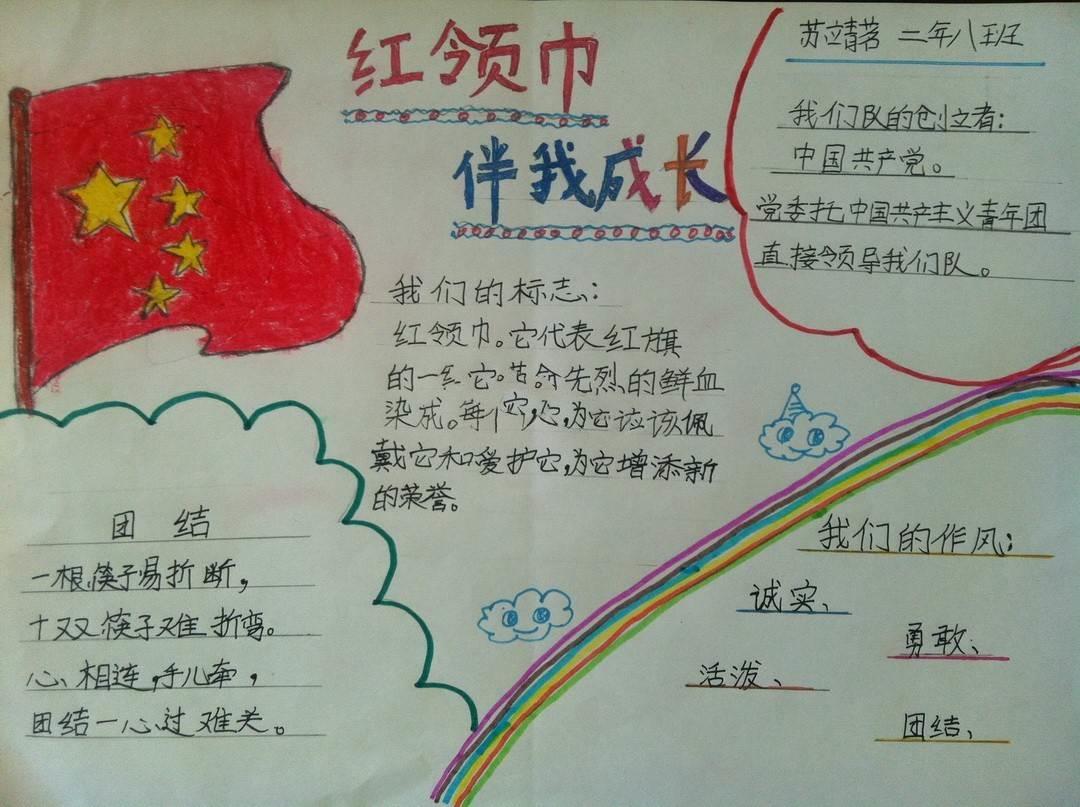 红领巾
伴我成长
苏靖茗 二年八班
我们队的创立者:
中国共产党。
党委托中国共产主义青年团
直接领导我们队。
我们的标志:
红领巾。它代表红旗
的一 它。革命先烈的鲜血
染成。每个 为它应该佩
戴它和爱护它,为它增添新
的荣誉。
团结
一根筷子易折断,
十双筷子难折弯。
心相连,手儿牵,
团结一心过难关。
我们的作风:
诚实、
勇敢、
活泼、
团结、